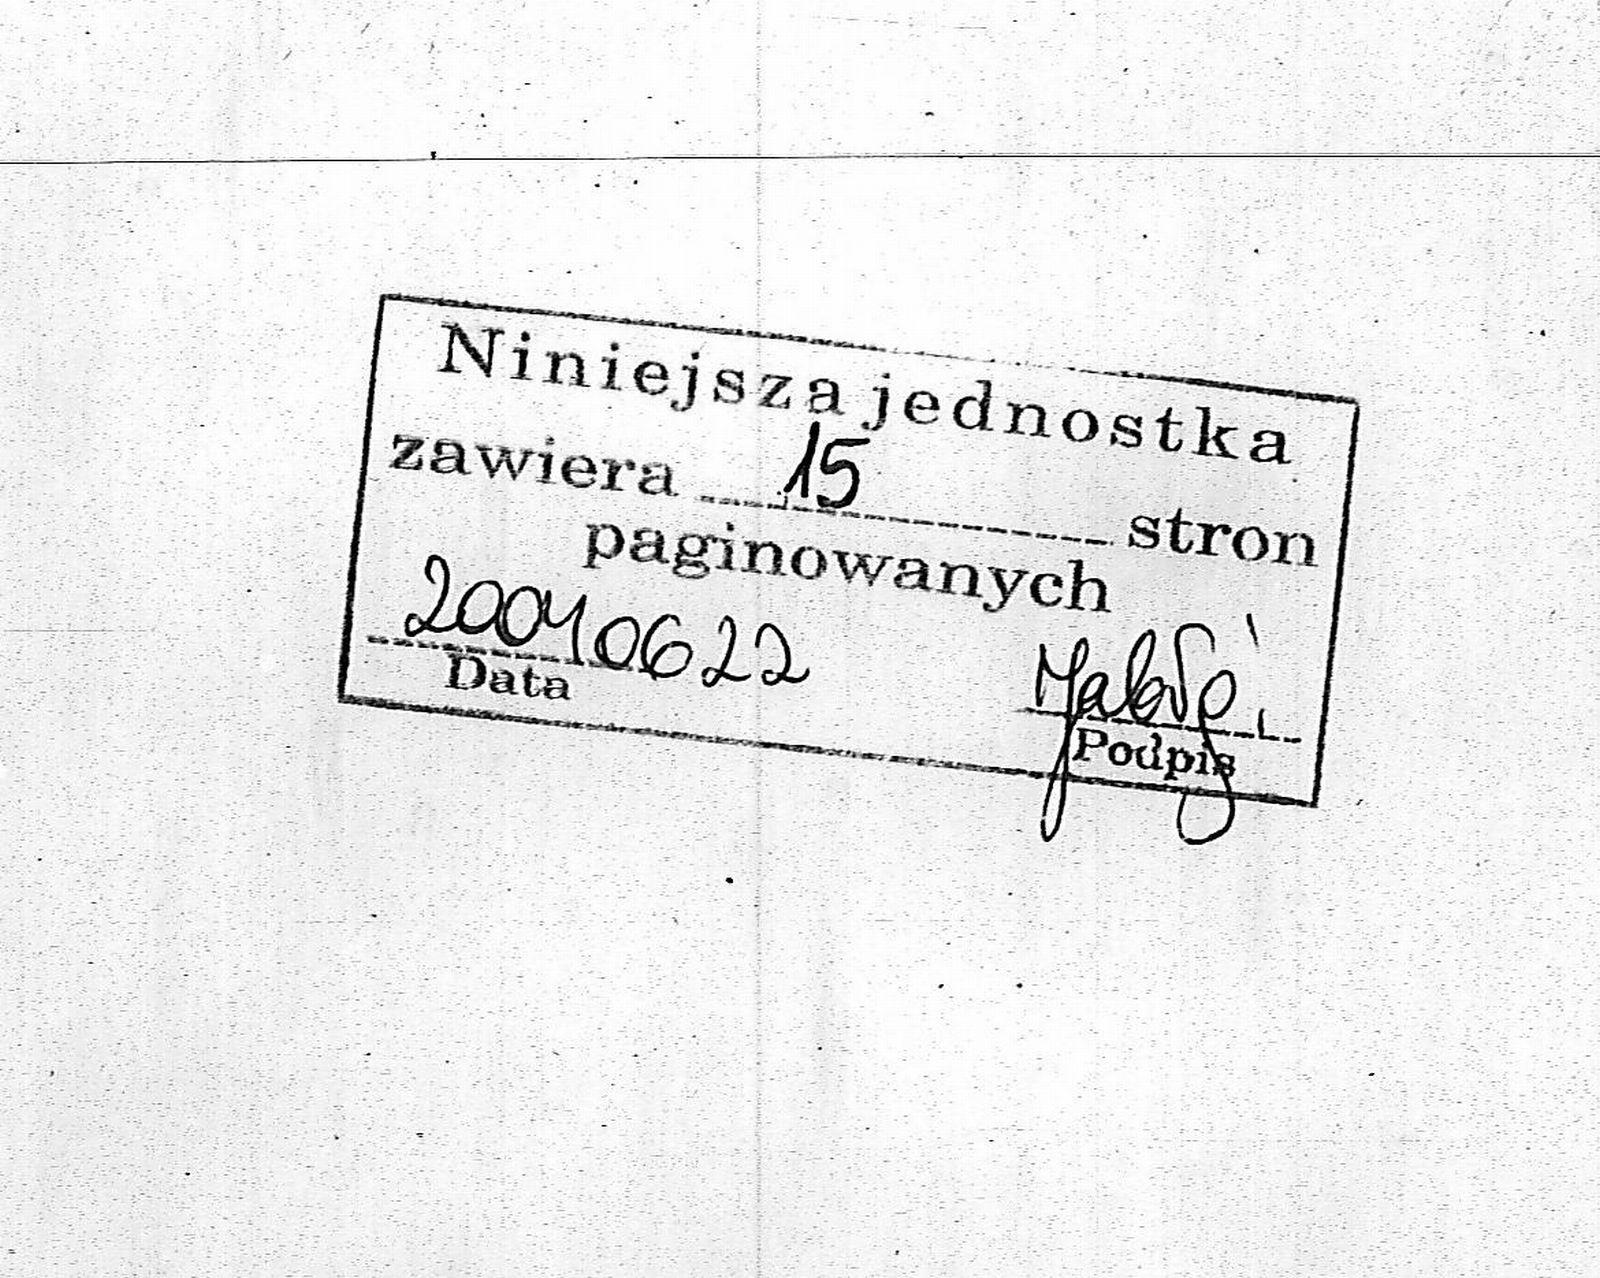 Niniejsza jednostka
zawiera 15 stron
paginowanych
20040622
Data
Podpis